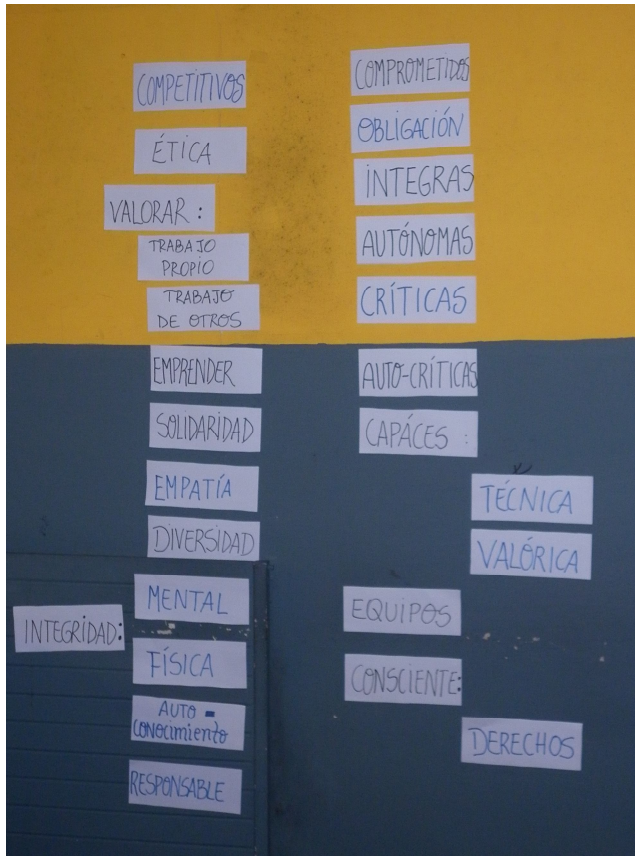 COMPETITIVOS
ÉTICA
VALORAR :
TRABAJO
PROPIO
TRABAJO
DE OTROS
EMPRENDER
SOLIDARIDAD
EMPATÍA
DIVERSIDAD
INTEGRIDAD:
MENTAL
FÍSICA
AUTO-
CONOCIMIENTO
RESPONSABLE
COMPROMETIDOS
OBLIGACIÓN
INTEGRAS
AUTÓNOMAS
CRÍTICAS
AUTO-CRÍTICAS
CAPÁCES :
TÉCNICA
VALÓRICA
EQUIPOS
CONSCIENTE:
DERECHOS